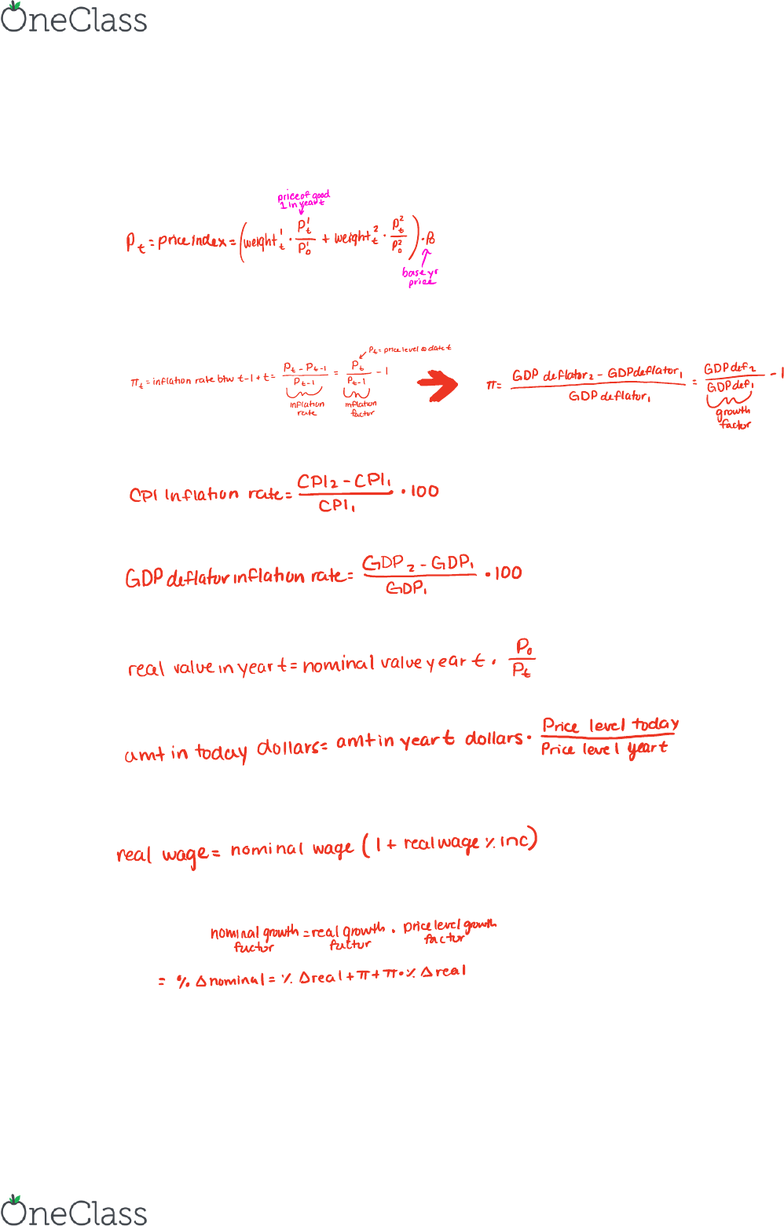 OneClass
price of good
1 in year t
P_t = price index = (weight_t^1 · P_t^1/P_0^1 + weight_t^2 · P_t^2/P_0^2) · P_0
base yr
price
P_t = price level @ date t
π_t = inflation rate btw t-1 + t = (P_t - P_t-1)/P_t-1 = P_t/P_t-1 - 1
inflation
rate
inflation
factor
π = (GDP deflator_2 - GDP deflator_1)/GDP deflator_1 = GDP def_2/GDP def_1 - 1
growth
factor
CPI inflation rate = (CPI_2 - CPI_1)/CPI_1 · 100
GDP deflator inflation rate = (GDP_2 - GDP_1)/GDP_1 · 100
real value in year t = nominal value year t · P_0/P_t
amt in today dollars = amt in year t dollars · Price level today/Price level year t
real wage = nominal wage (1 + real wage % inc)
nominal growth factor = real growth factor · price level growth factor
= % Δ nominal = % Δ real + π + π · % Δ real
OneClass